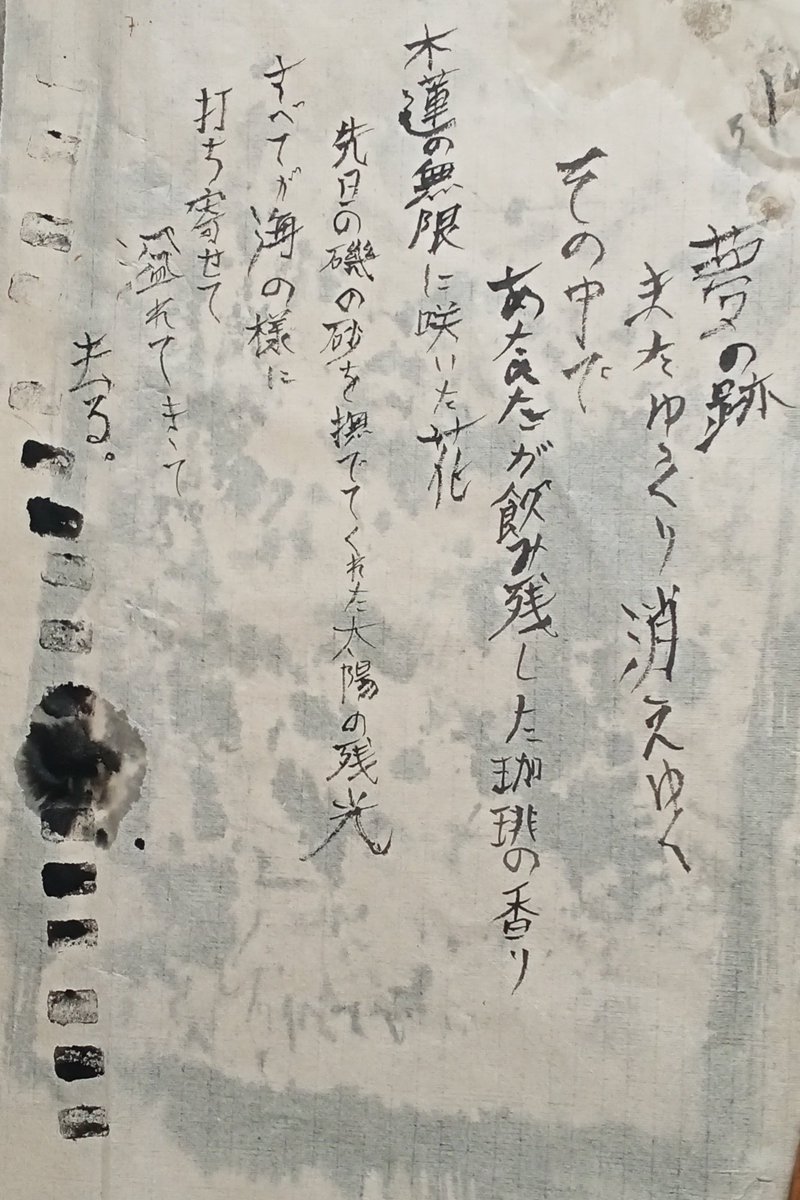 夢の跡
またゆっくり消えゆく
その中で
あなたが飲み残した珈琲の香り
木蓮の無限に咲いた花
先日の磯の砂を撫でてくれた太陽の残光
すべてが海の様に
打ち寄せて
溢れてきて
去る。